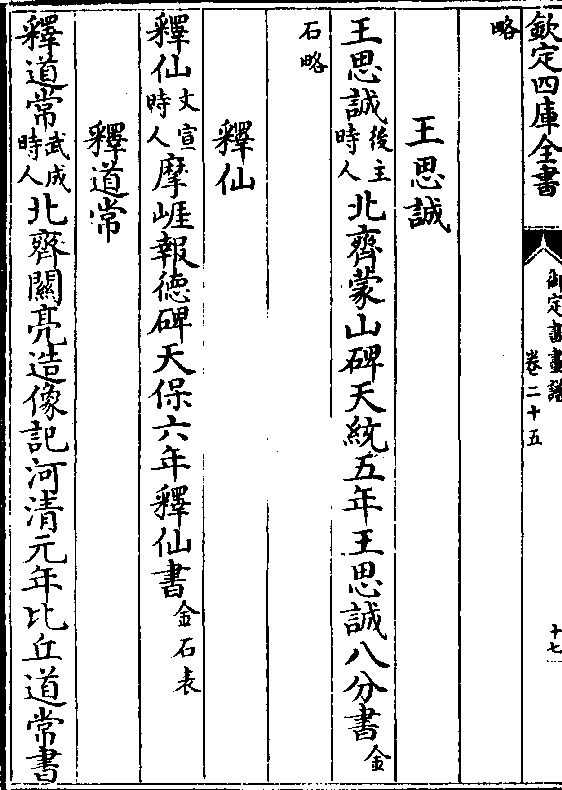 欽定四庫全書
御定書畫譜
卷二十五
十七
略
王思誠
王思誠後主時人北齊蒙山碑天統五年王思誠八分書金
石略
釋仙
釋仙文宣時人摩崕報德碑天保六年釋仙書金石表
釋道常
釋道常武成時人北齊關亮造像記河清元年比丘道常書